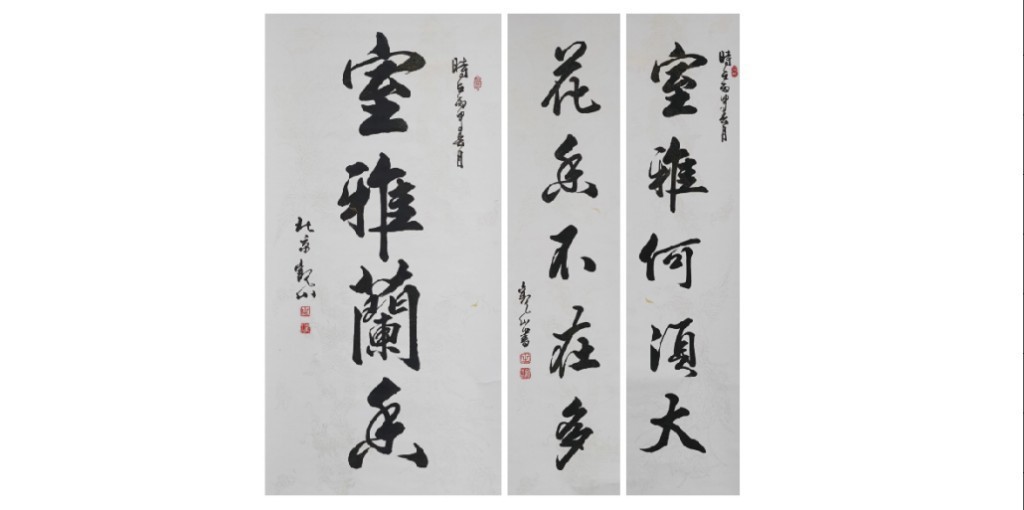 時在丙申春月
室雅何須大
花香不在多
觀山書
時在丙申春月
室雅蘭香
北京觀山